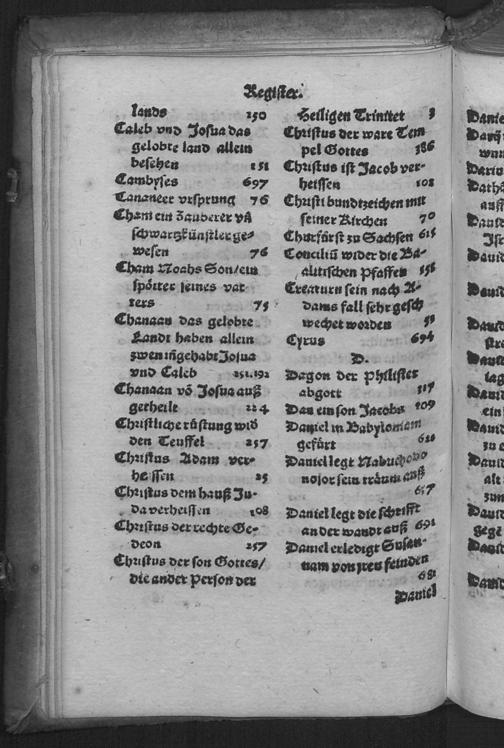 Register.
lands 150
Caleb vnd Josua das
gelobte land allein
besehen 151
Cambyses 697
Cananeer vrsprung 76
Cham ein Zauberer vñ
schwartzkünstler ge-
wesen 76
Cham Noahs Son/ein
spötter seines vat
ters 75
Chanaan das gelobte
Landt haben allein
zwen iñgehabt Josua
vnd Caleb 151.192
Chanaan võ Josua auß
getheilt 224
Christliche rüstung wid
den Teuffel 257
Christus Adam ver-
heissen 25
Christus dem hauß Ju-
da verheissen 108
Christus der rechte Ge-
deon 257
Christus der son Gottes/
die ander Person der
Heiligen Trinitet 3
Christus der ware Tem
pel Gottes 386
Christus ist Jacob ver-
heissen 102
Christi bundtzeichen mit
seiner Kirchen 70
Churfürst zu Sachsen 615
Conciliũ wider die Ba-
alitischen Pfaffen
Creaturn sein nach A-
dams fall sehr gesch
wechet worden
Cyrus 694
D.
Dagon der Philister
abgott 317
Dan ein son Jacobs 109
Daniel in Babyloniam
gefürt
Daniel legt Nabuchodo
nosor sein träum auß
617
Daniel legt die schrifft
an der wandt auß 691
Daniel erledigt Susan-
nam von jren feinden
681
Daniel